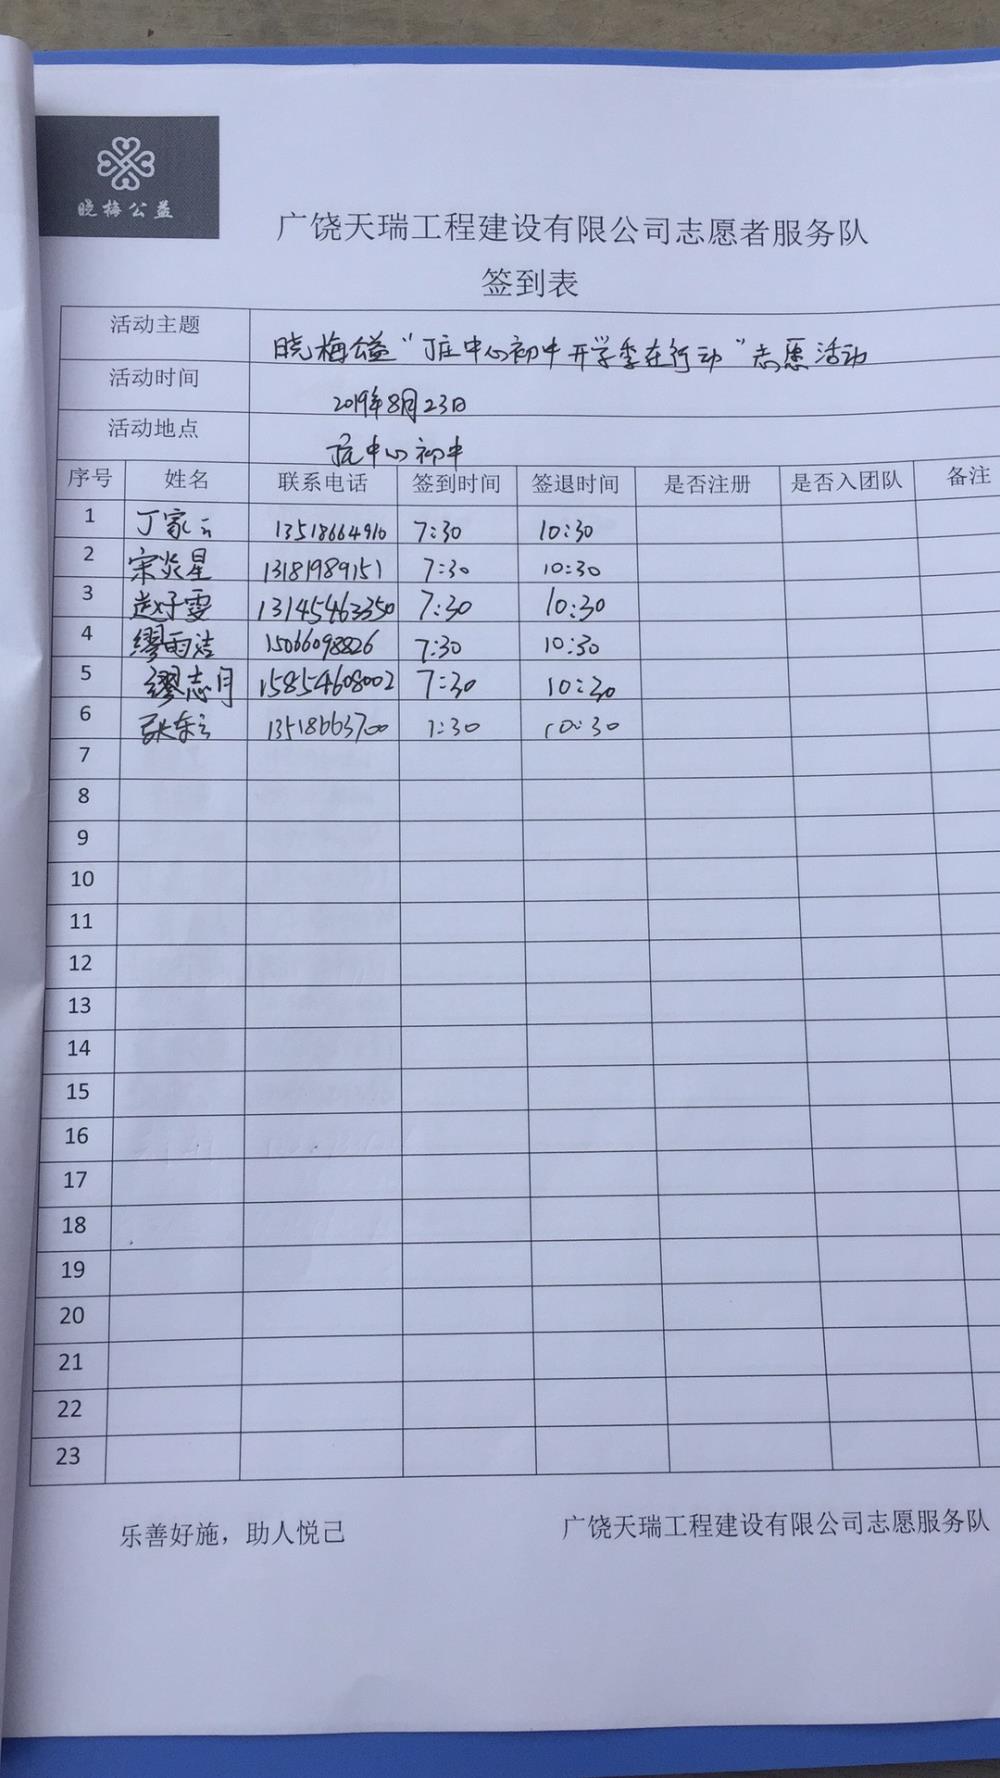 晓梅公益
广饶天瑞工程建设有限公司志愿者服务队
签到表
活动主题 晓梅公益“丁庄中心初中开学季在行动”志愿活动
活动时间 2019年8月23日
活动地点 中心初中
序号 姓名 联系电话 签到时间 签退时间 是否注册 是否入团队 备注
1 丁家云 13518664910 7:30 10:30
2 宋炎星 13181989151 7:30 10:30
3 赵子雯 13145463350 7:30 10:30
4 缪雨洁 15066098826 7:30 10:30
5 缪志月 15854608002 7:30 10:30
6 张东云 13518663700 7:30 10:30
7
8
9
10
11
12
13
14
15
16
17
18
19
20
21
22
23
乐善好施，助人悦己 广饶天瑞工程建设有限公司志愿服务队